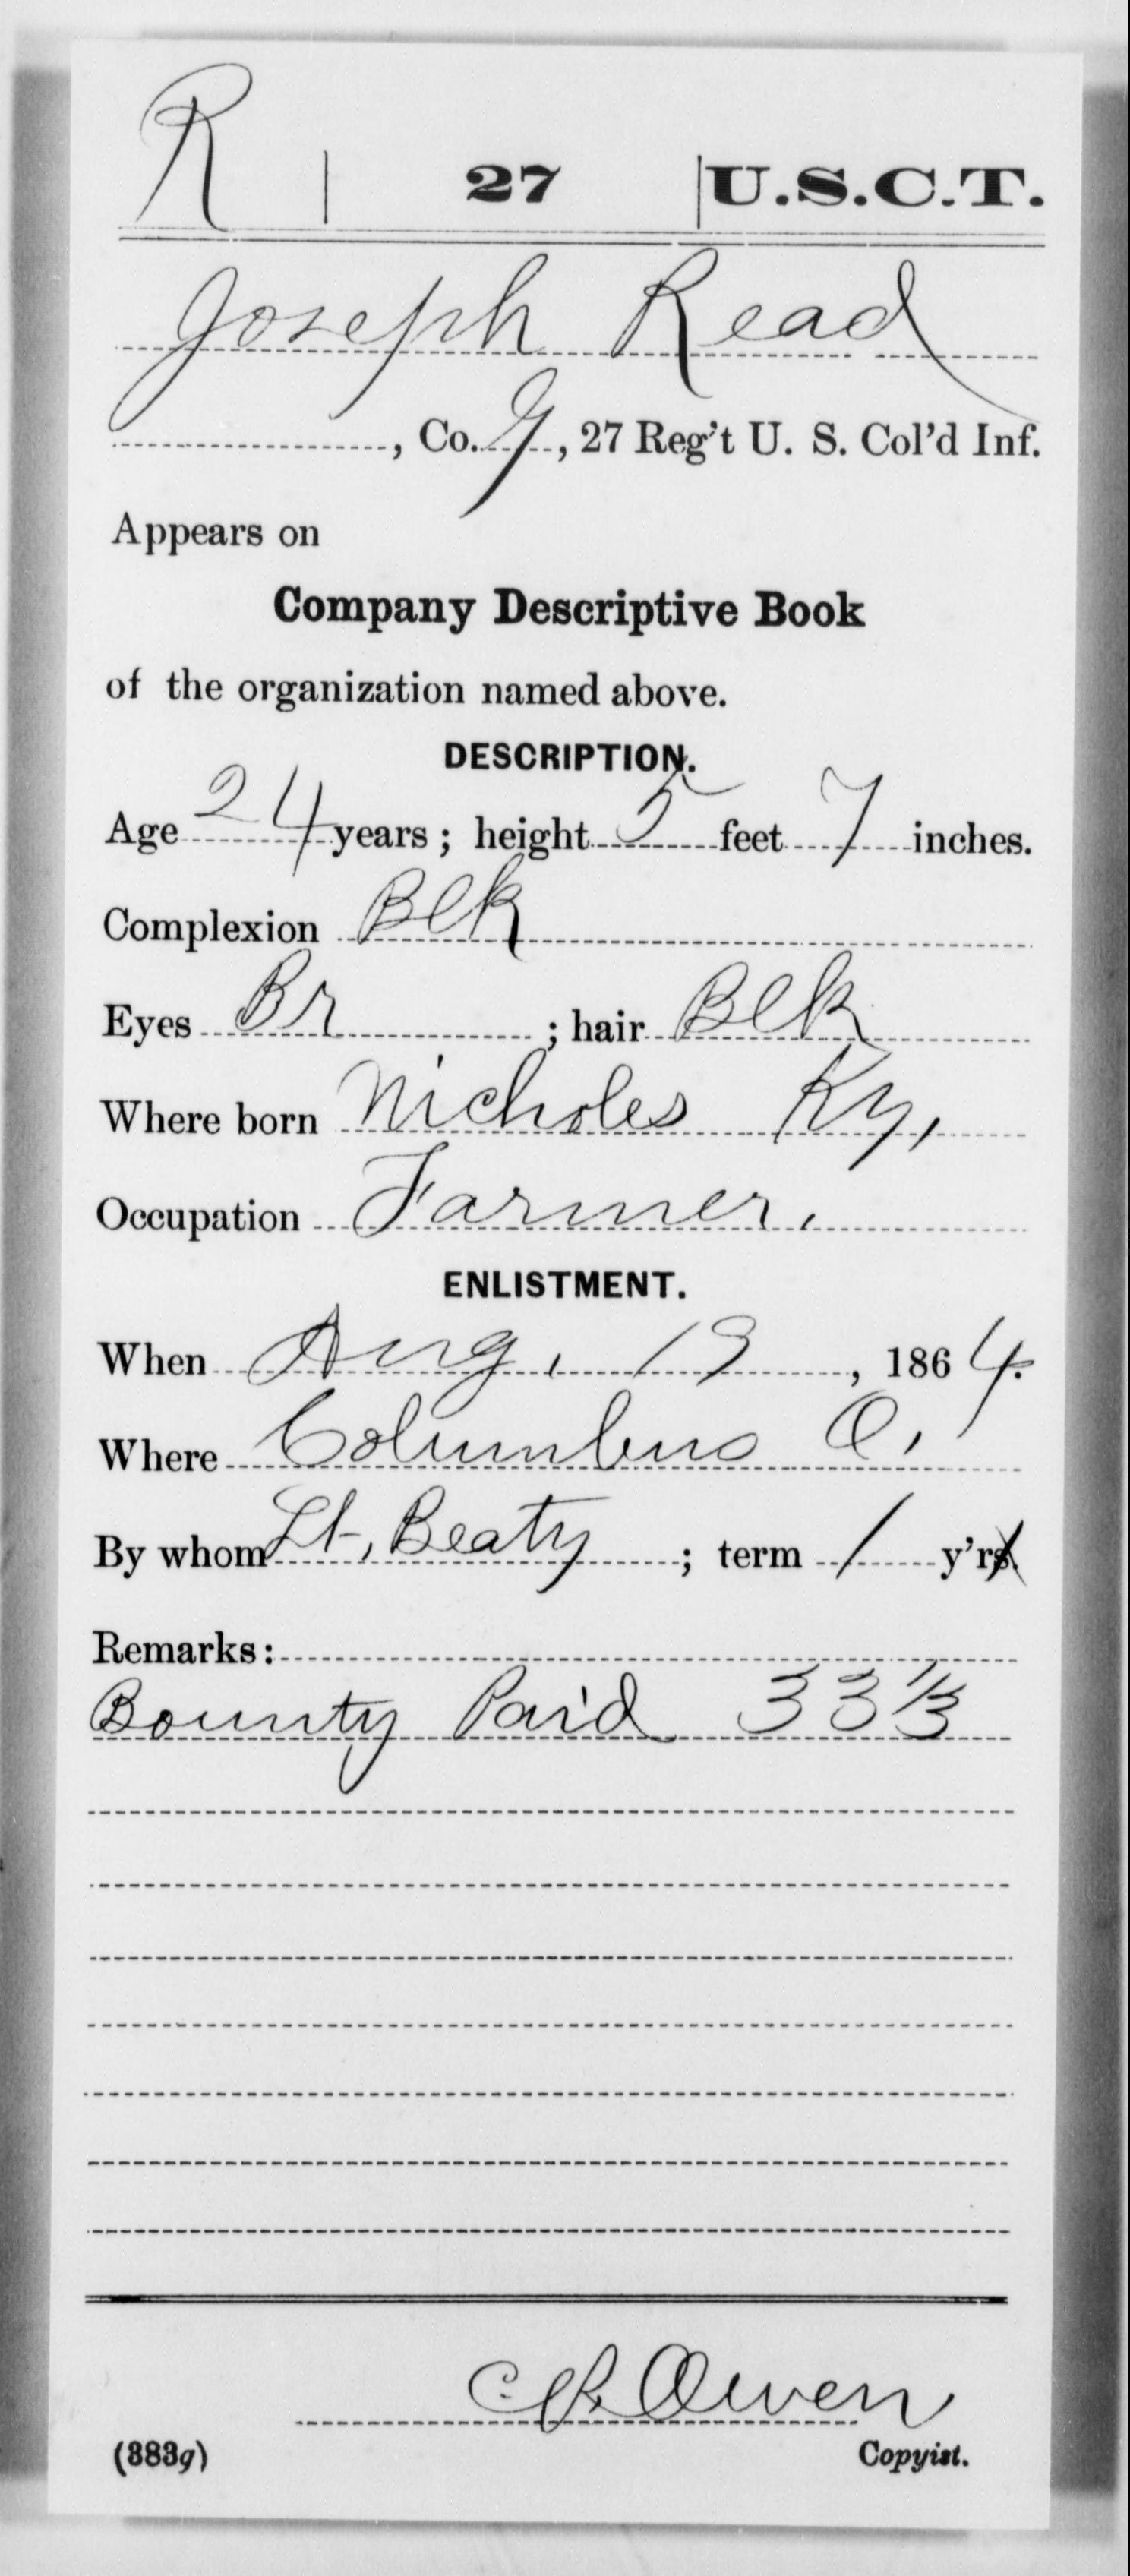 R | 27 | U.S.C.T.
Joseph Read
, Co. G, 27 Reg't U. S. Col'd Inf.
Appears on
Company Descriptive Book
of the organization named above.
DESCRIPTION.
Age 24 years; height 5 feet 7 inches.
Complexion Blk
Eyes Br ; hair Blk
Where born Nicholes Ky,
Occupation Farmer.
ENLISTMENT.
When Aug. 19, 1864.
Where Columbus O.
By whom Lt, Beaty ; term 1 y'rs.
Remarks:
Bounty Paid 33 1/3
C. B. Owen
(383g) Copyist.